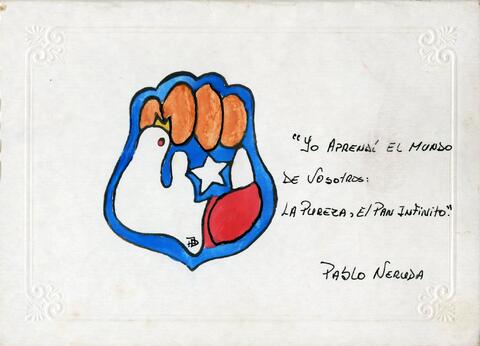 "Yo Aprendí el Mundo
de Vosotros:
la Pureza, el Pan Infinito."
Pablo Neruda